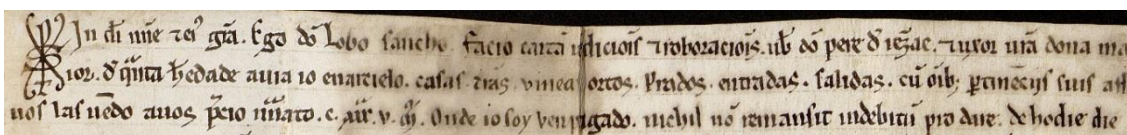 In di nne τ ei gra. Ego do Lobo sancho. facio carta udiciois τ roboraciois. ub do pere d τ uxor ura dona ma
ior. d qnta hedade auia io en arcielo. casas. tras. uinea ortos. Prados. entradas. salidas. cu oib; ptinecijs suis
uos las uedo auos pcio nuato. c. xix. v. mr. Onde io soy pagado. nichil no remansit indebitu pro dare. de hodie die